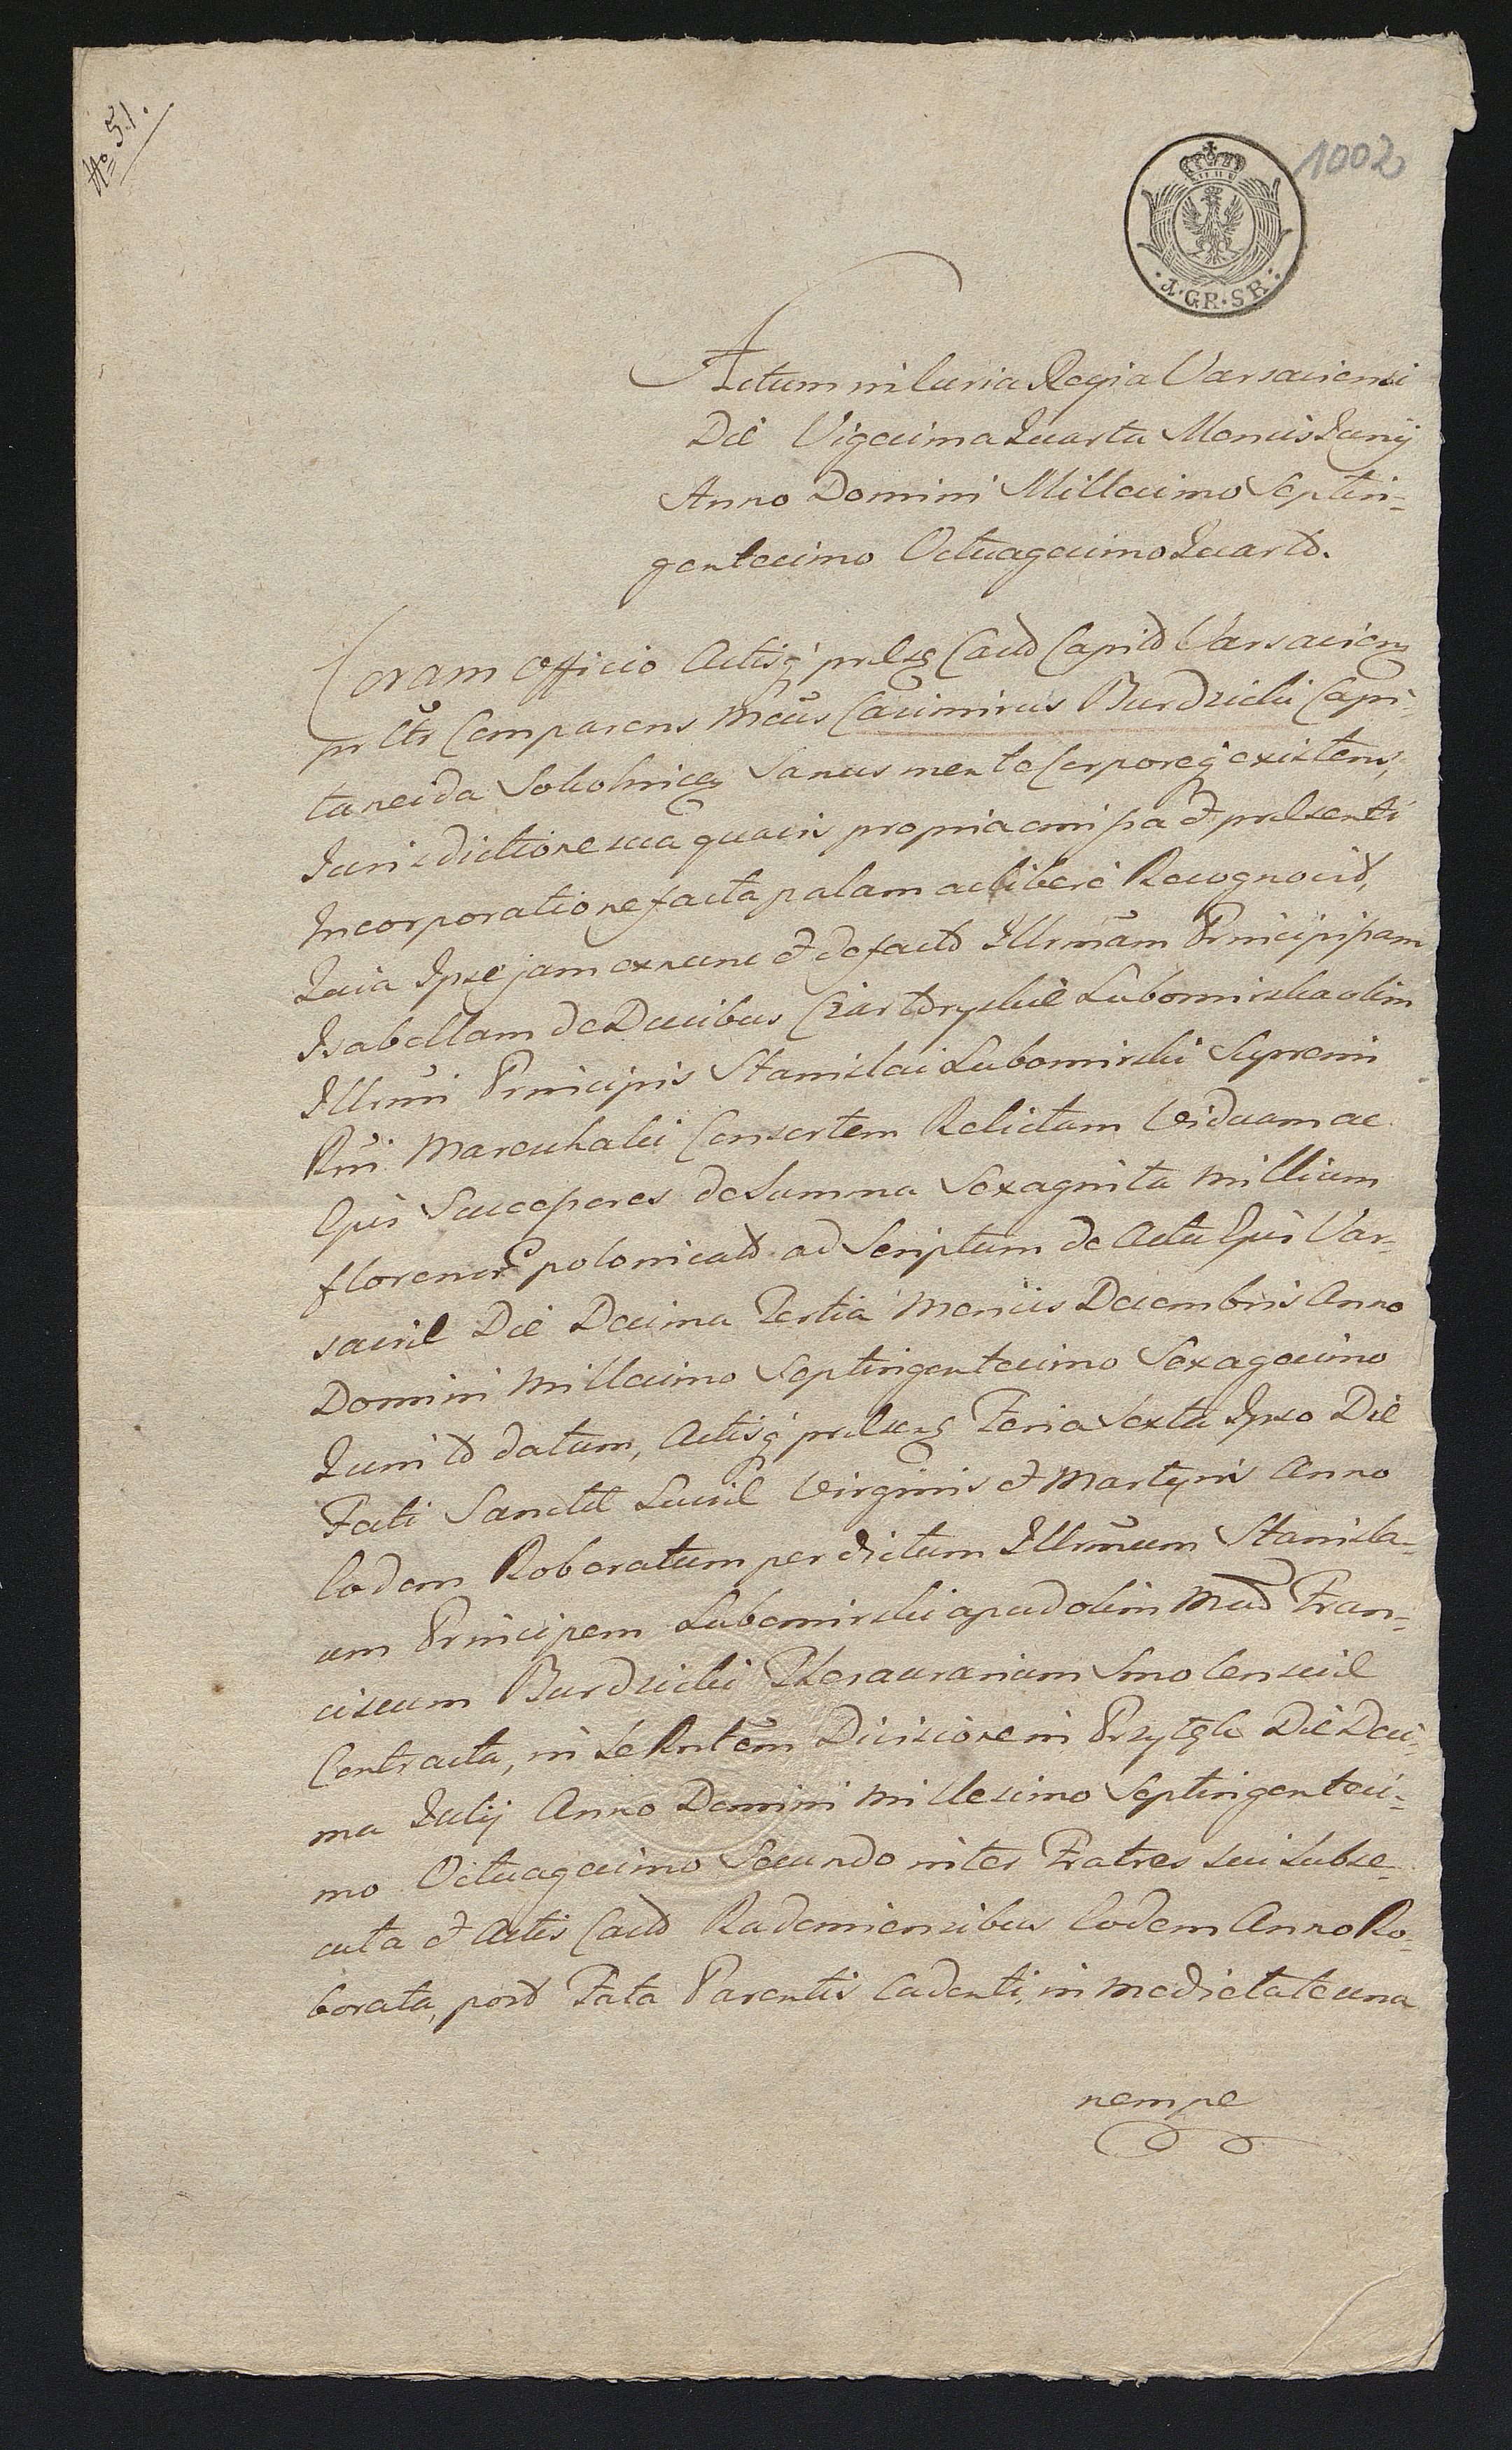 No 51.
1002
·1·GR·SR·
Actum in Curia Regia Varsaviensi
Die Vigesima Quarta Mensis Junij
Anno Domini Millesimo Septin-
gentesimo Octuagesimo Quarto.
Coram Officio Actisq prlsg Castr Capit Varsavien
prltr Comparens Mcus Casimirus Burdzicki Capi-
taneida Sokolnicg Sanus mente Corporeq existens,
Jurisdictione sua quavis propria omissa et prlsenti
Incorporatione facta palam ac libere Recognovit,
Quia Ipse jam ex nunc et de facto Illrmam Principissam
Isabellam de Ducibus Czartoryskie Lubomirska olim
Illrmi Principis Stanislai Lubomirski Supremi
Rni Mareschalci Consortem Relictam Viduam ac
Ejus Successores de Summa Sexaginta Millium
florenor polonical ad Scriptum de Actu Ejus Var-
savil Die Decima Tertia Mensis Decembris Anno
Domini Millesimo Septingentesimo Sexagesimo
Quinto datum, Actisq prlsug Feria Sexta Ipso Die
Festi Sanctl Lucil Virginis et Martyris Anno
Eodem Roboratum per dictum Illrmum Stanisla-
um Principem Lubomirski apud olim Mcd Fran-
ciscum Burdzicki Thesaurarium Smolenscil
Contracta, in se Rntem Divisione in Przytyk Die Deci-
ma Julij Anno Domini Millesimo Septingentesi-
mo Octuagesimo Secundo inter Fratres sui subse-
cuta et Actis Castr Radomiensibus Eodem Anno Ro-
borata, post Fata Parentis Cadenti, in medietate una
nempe